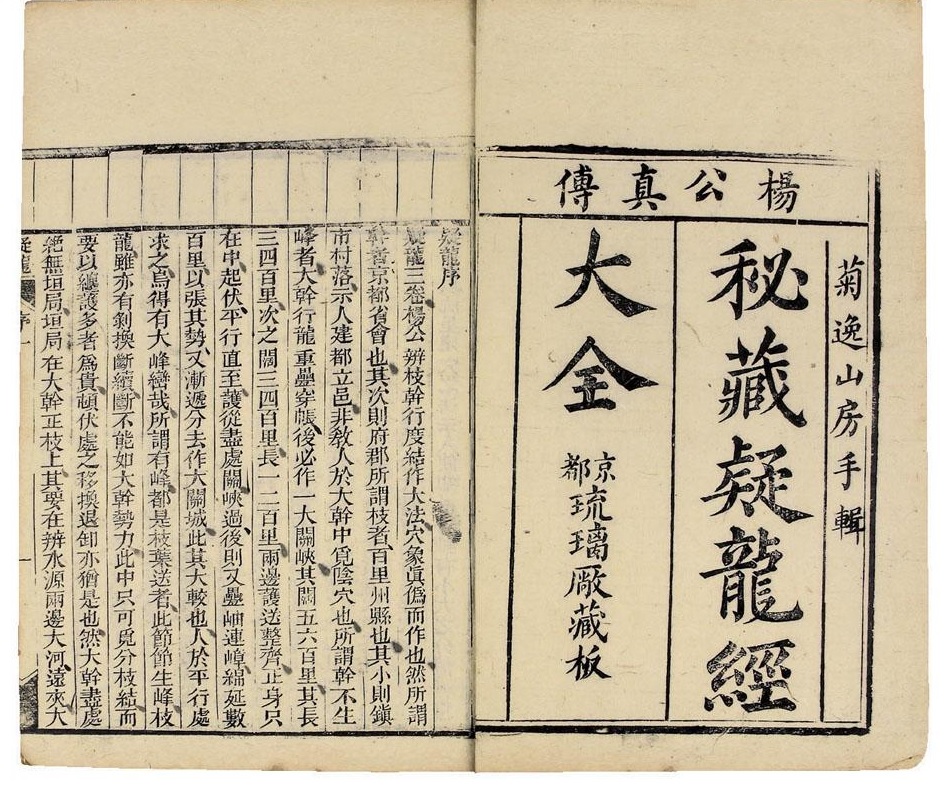 楊公真傳
菊逸山房手輯
秘藏疑龍經
大全
京都
琉璃厰藏板
疑龍序
疑龍三卷楊公辨枝幹行度結作大法穴象眞僞而作也然所謂
幹者京都省會也其次則府郡所謂枝者百里州縣也其小則鎭
市村落示人建都立邑非敎人於大幹中覓陰穴也所謂幹不生
峰者大幹行龍重疊穿帳後必作一大關峽其闊五六百里其長
三四百里次之闊三四百里長一二百里兩邊護送整齊正身只
在中起伏平行直至護從盡處關峽過後則又疊岫連嶂綿延數
百里以張其勢又漸遞分去作大關城此其大較也人於平行處
求之烏得有大峰巒哉所謂有峰都是枝葉送者此節節生峰枝
龍雖亦有剝換斷續斷不能如大幹勢力此中只可覓分枝結而
要以纏護多者爲貴頓伏處之移換退卸亦猶是也然大幹盡處
絶無垣局垣局在大幹正枝上其要在辨水源兩邊大河遠夾大
疑龍 序 一